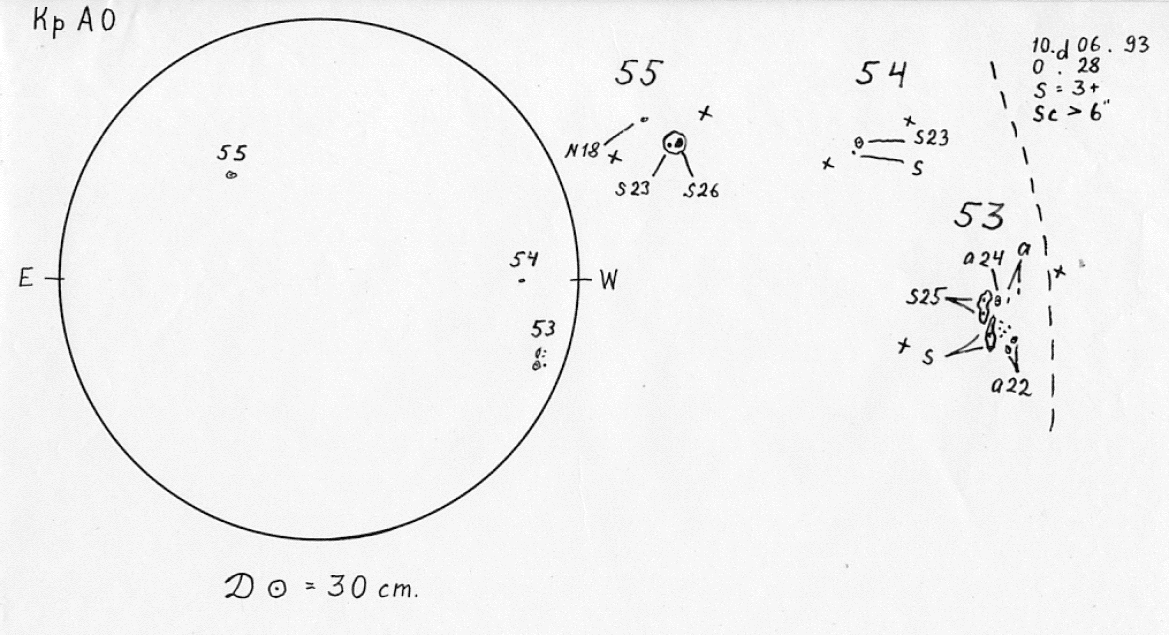 Кр АО
55
E
54
W
53
D ⊙ = 30 cm.
55
N18
S23 S26
54
S23
S
10.d 06 . 93
0 . 28
S = 3+
Sc > 6"
53
a24 a
S25
S
a22